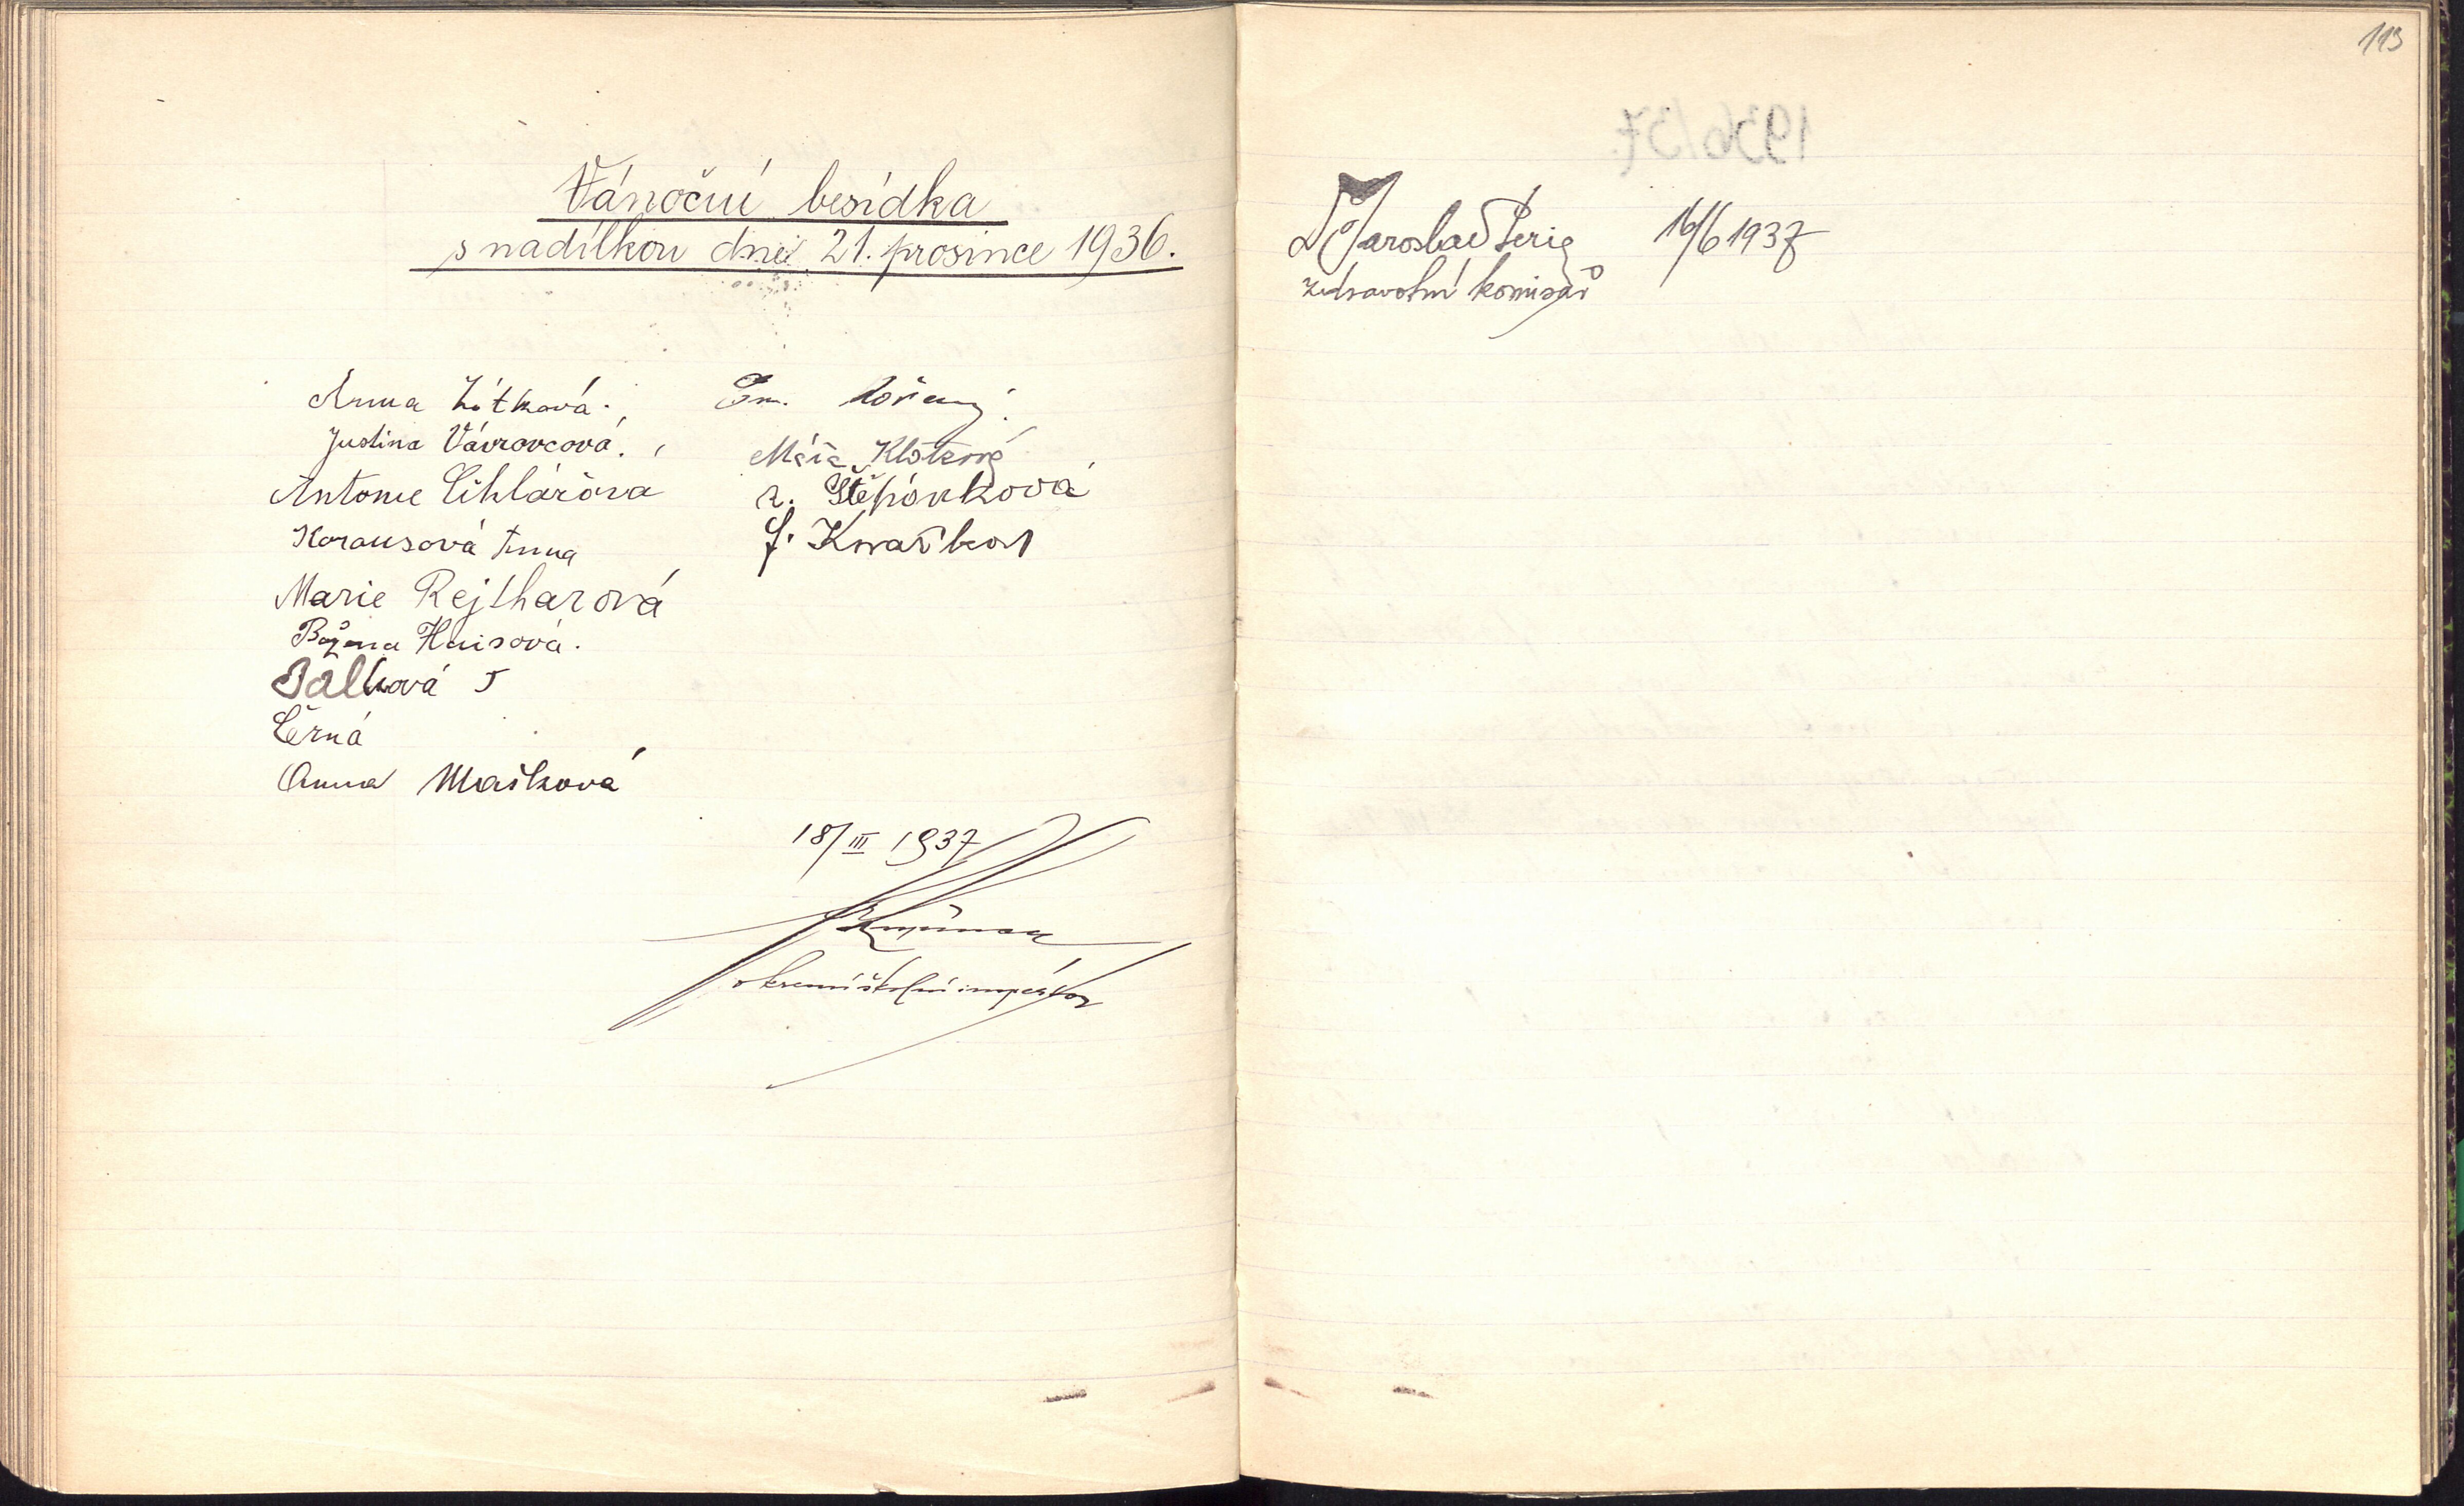 Vánoční besídka
s nadílkou dne 21. prosince 1936.
Anna Žítková.
Justina Vávrovcová.
Antonie Cihlářova
Korousová Anna
Marie Rejtharová
Božena Haisová.
Bálková J
Černá
Anna Mašková
Em.
Klášterná
Štěpánková
J. Kvaček
18/III 1937
okresní školní inspektor
113
1936/37
Dr Jaroslav 16/6 1937
zdravotní komisař